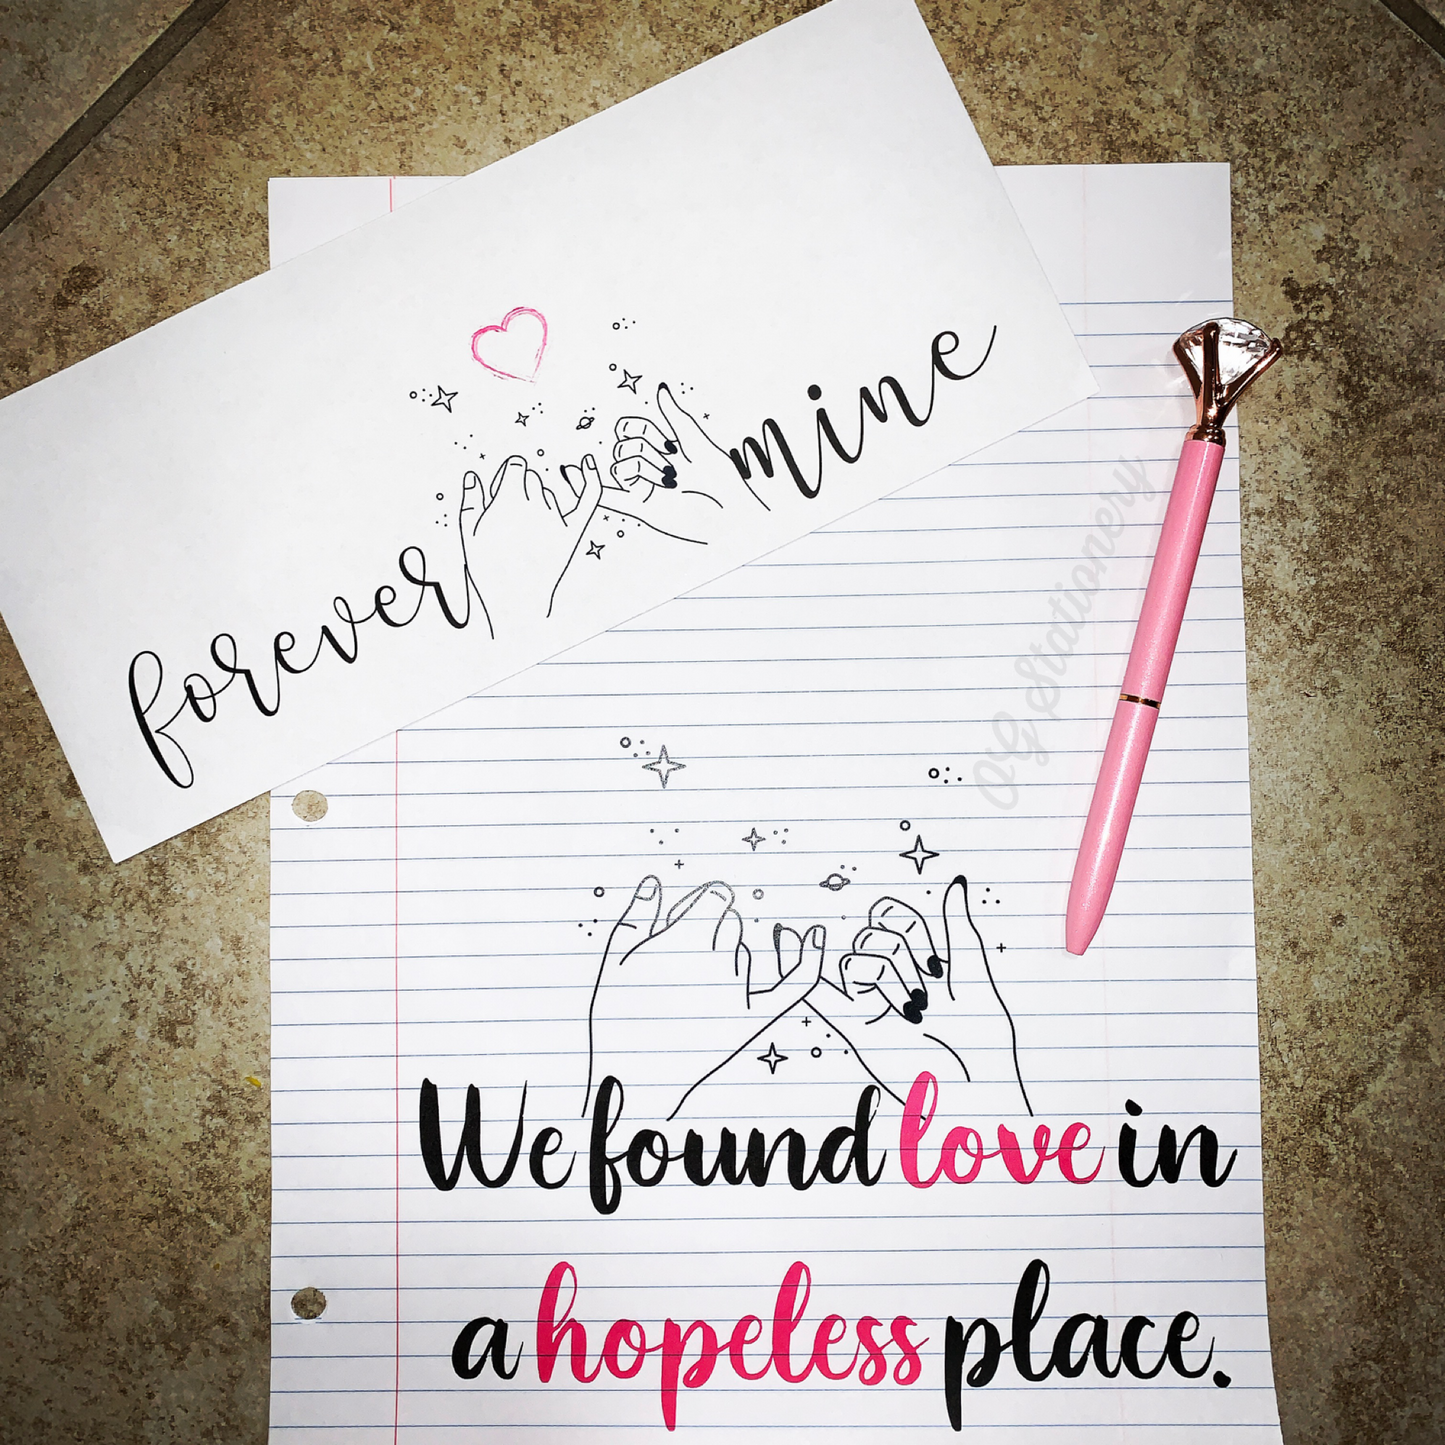 forever mine
OG Stationery
We found love in
a hopeless place.